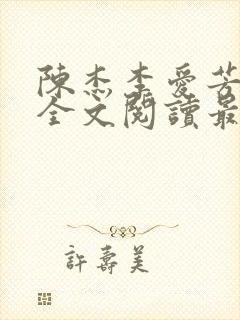 陳杰李愛芳
全文閱讀最
許壽美